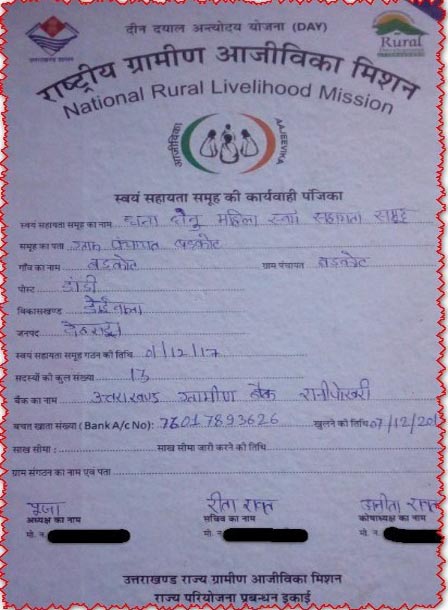 दीन दयाल अन्त्योदय योजना (DAY)
उत्तराखण्ड शासन
Rural
राष्ट्रीय ग्रामीण आजीविका मिशन
National Rural Livelihood Mission
आजीविका
AAJEEVIKA
स्वयं सहायता समूह की कार्यवाही पंजिका
स्वयं सहायता समूह का नाम महिला स्वयं सहायता समूह
समूह का पता ग्राम पंचायत बडकोट
गाँव का नाम बडकोट ग्राम पंचायत बडकोट
पोस्ट डांडी
विकासखण्ड डोईवाला
जनपद देहरादून
स्वयं सहायता समूह गठन की तिथि 01/12/17
सदस्यों की कुल संख्या 13
बैंक का नाम उत्तराखण्ड ग्रामीण बैंक रानीपोखरी
बचत खाता संख्या (Bank A/c No): 76017893626 खुलने की तिथि 07/12/201
साख सीमा : साख सीमा जारी करने की तिथि
ग्राम संगठन का नाम एवं पता
पूजा रीता रावत अनीता रावत
अध्यक्ष का नाम सचिव का नाम कोषाध्यक्ष का नाम
मो. न. मो. न. मो. न.
उत्तराखण्ड राज्य ग्रामीण आजीविका मिशन
राज्य परियोजना प्रबन्धन इकाई